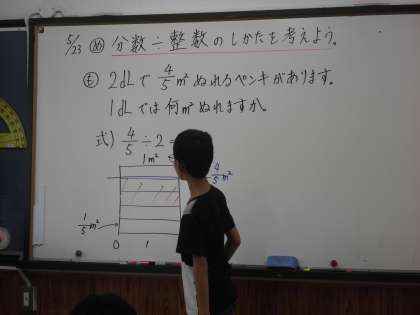 5/23 め 分数÷整数のしかたを考えよう。
も 2dLで 4/5 m² ぬれるペンキがあります。
1dLでは何m²ぬれますか。
式) 4/5 ÷ 2 =
1m²
4/5 m²
1/5 m²
0 1